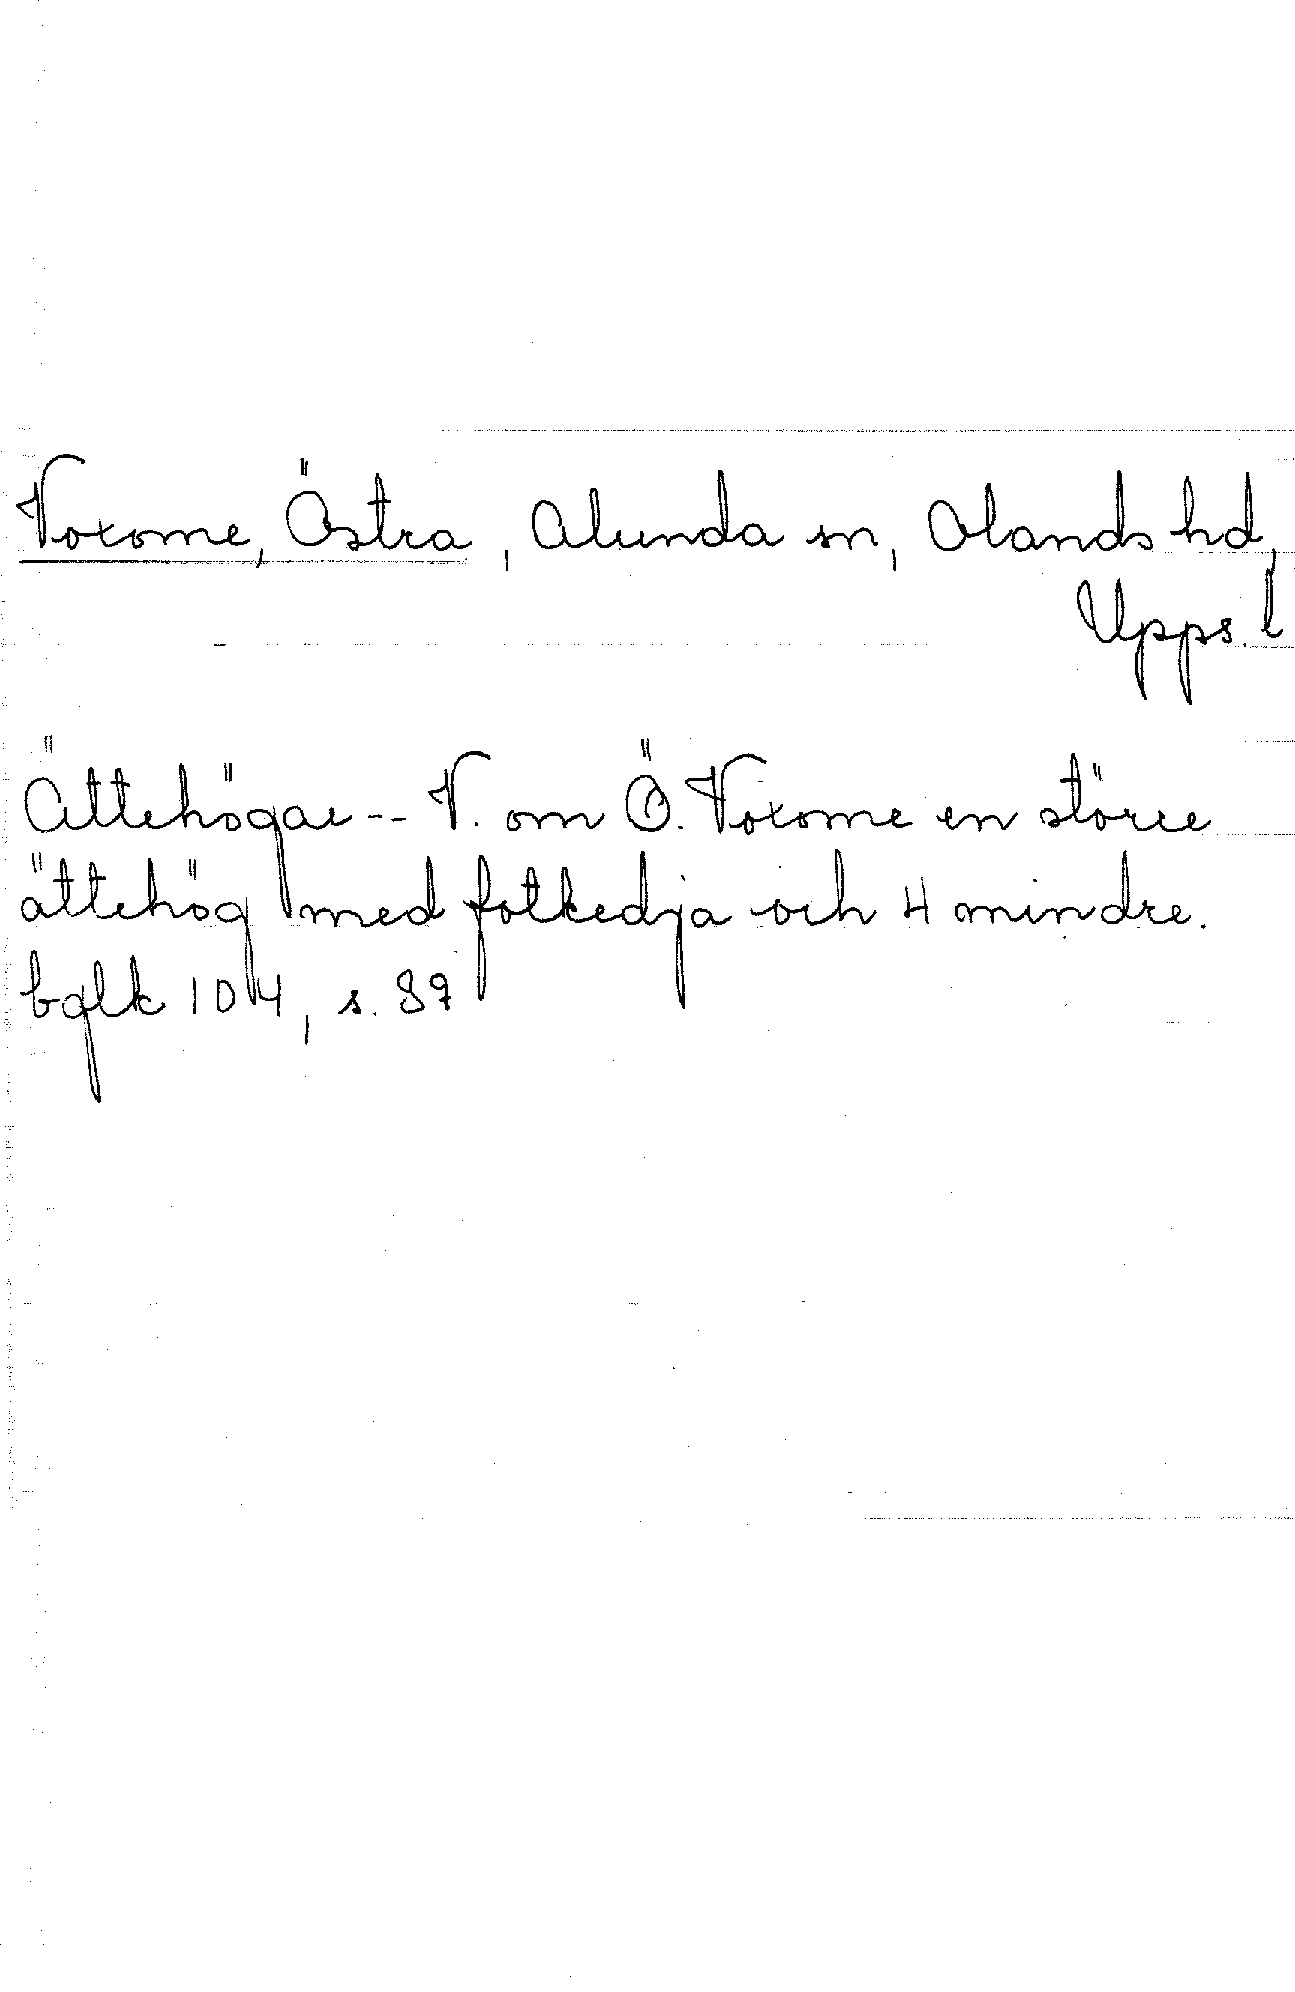 Voxome, Östra, Alunda sn, Olands hd,
Upps. l
Ättehögar -- V. om Ö. Voxome en större
ättehög med fotkedja och 4 mindre.
bglk 104, s. 89